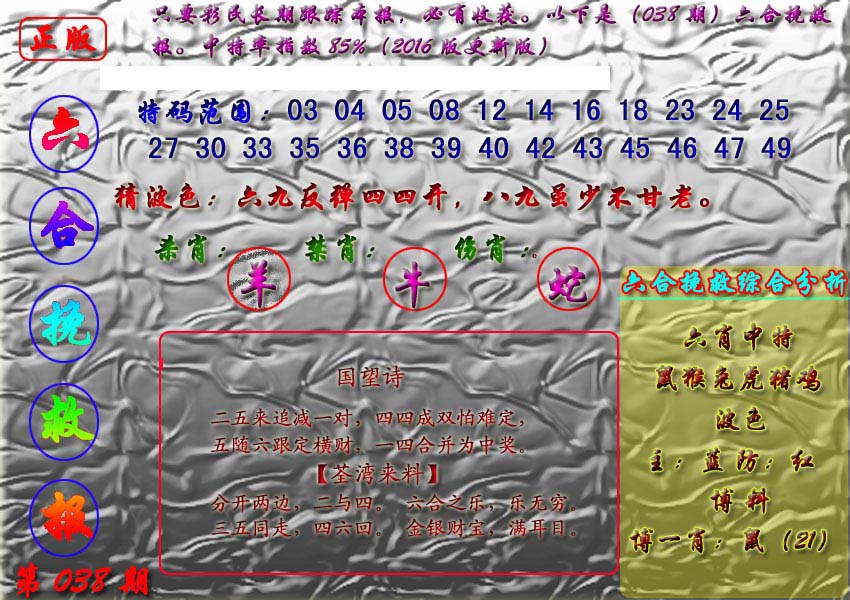 正版
只要彩民长期跟踪本报，必有收获。以下是（038期）六合挽救
报。中特率指数85%（2016版更新版）
六合挽救报
第038期
特码范围：03 04 05 08 12 14 16 18 23 24 25
27 30 33 35 36 38 39 40 42 43 45 46 47 49
猜波色：六九反弹四四开，八九虽少不甘老。
杀肖：羊 禁肖：牛 伤肖：蛇
国望诗
二五来追减一对，四四成双怕难定，
五随六跟定横财，一四合并为中奖。
【荃湾来料】
分开两边，二与四。 六合之乐，乐无穷。
三五同走，四六回。 金银财宝，满耳目。
六合挽救综合分析
六肖中特
鼠猴兔虎猪鸡
波色
主：蓝防：红
博料
博一肖：鼠（21）